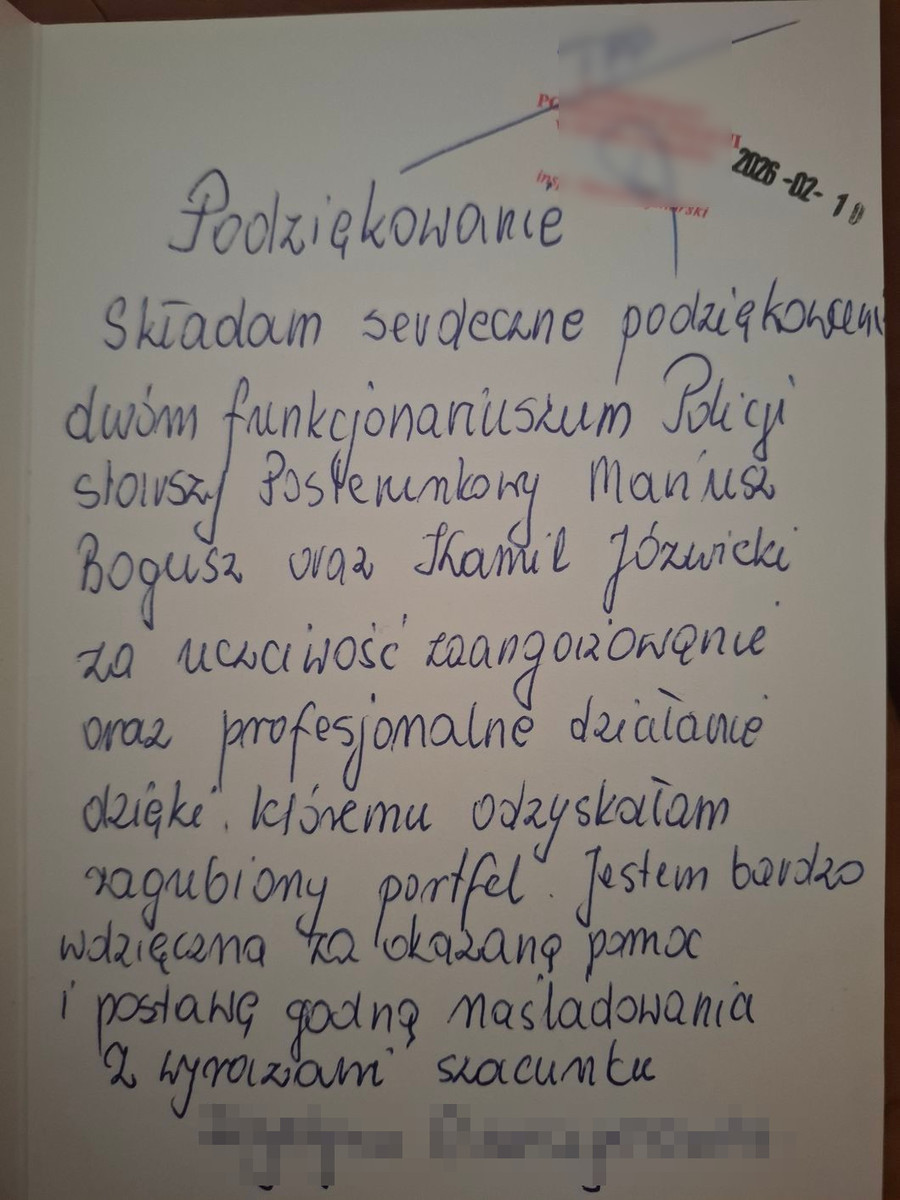 2026 -02- 10
Podziękowanie
Składam serdeczne podziękowani
dwóm funkcjonariuszum Policji
starszy Posterunkowy Mariusz
Bogusz oraz Kamil Józwicki
za uczciwość zaangarzowanie
oraz profesjonalne działanie
dzięki. któremu odzyskałam
zagubiony portfel. Jestem bardzo
wdzięczna za okazaną pomoc
i postawę godną naśladowania
Z wyrazami szacunku